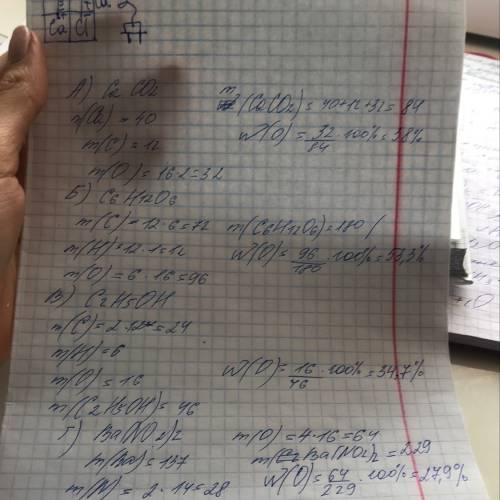 Ca Cl
А) CaCO2
m(Ca) = 40
m(C) = 12
m(O) = 16·2 = 32
m(CaCO2) = 40+12+32 = 84
W(O) = 32/84 · 100% = 38%
Б) C6H12O6
m(C) = 12·6 = 72
m(H) = 12·1 = 12
m(O) = 6·16 = 96
m(C6H12O6) = 180
W(O) = 96/180 · 100% = 53,3%
В) C2H5OH
m(C) = 2·12 = 24
m(H) = 6
m(O) = 16
m(C2H5OH) = 46
W(O) = 16/46 · 100% = 34,7%
Г) Ba(NO2)2
m(Ba) = 137
m(N) = 2·14 = 28
m(O) = 4·16 = 64
m(Ba(NO2)2 = 229
W(O) = 64/229 · 100% = 27,9%